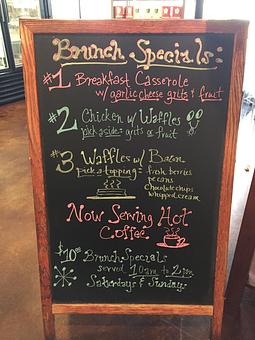 Brunch Specials:
#1 Breakfast Casserole
w/ garlic cheese grits & fruit
#2 Chicken w/ Waffles
pick a side: grits or fruit
#3 Waffles w/ Bacon
pick a topping = fresh berries
pecans
Chocolate chips
whipped cream
Now Serving Hot
Coffee
$10.00 Brunch Specials
served 10am to 2pm
Saturdays & Sundays